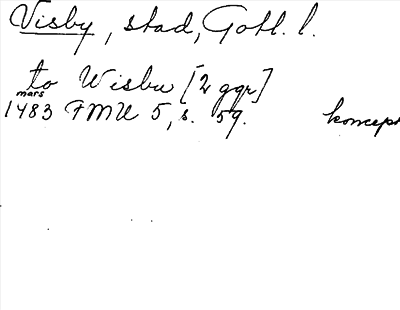 Visby, stad, Gotl. l.
to Wisbu [2 ggr]
mars
1483 FMU 5, s. 59. koncept